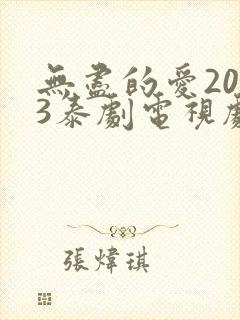 無盡的愛20
3泰劇電視劇
張煒琪